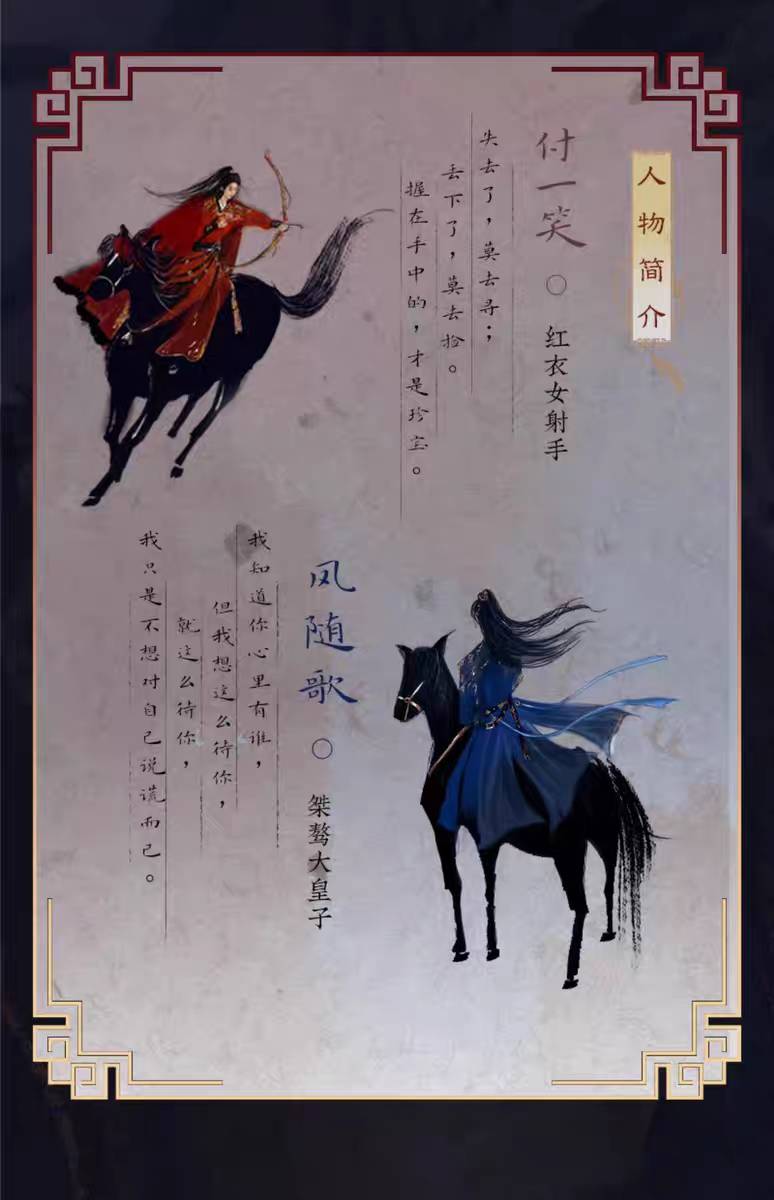 人物简介
付一笑○红衣女射手
失去了，莫去寻；
丢下了，莫去捡。
握在手中的，才是珍宝。
风随歌○桀骜大皇子
我知道你心里有谁，
但我想这么待你，
就这么待你，
我只是不想对自己说谎而已。